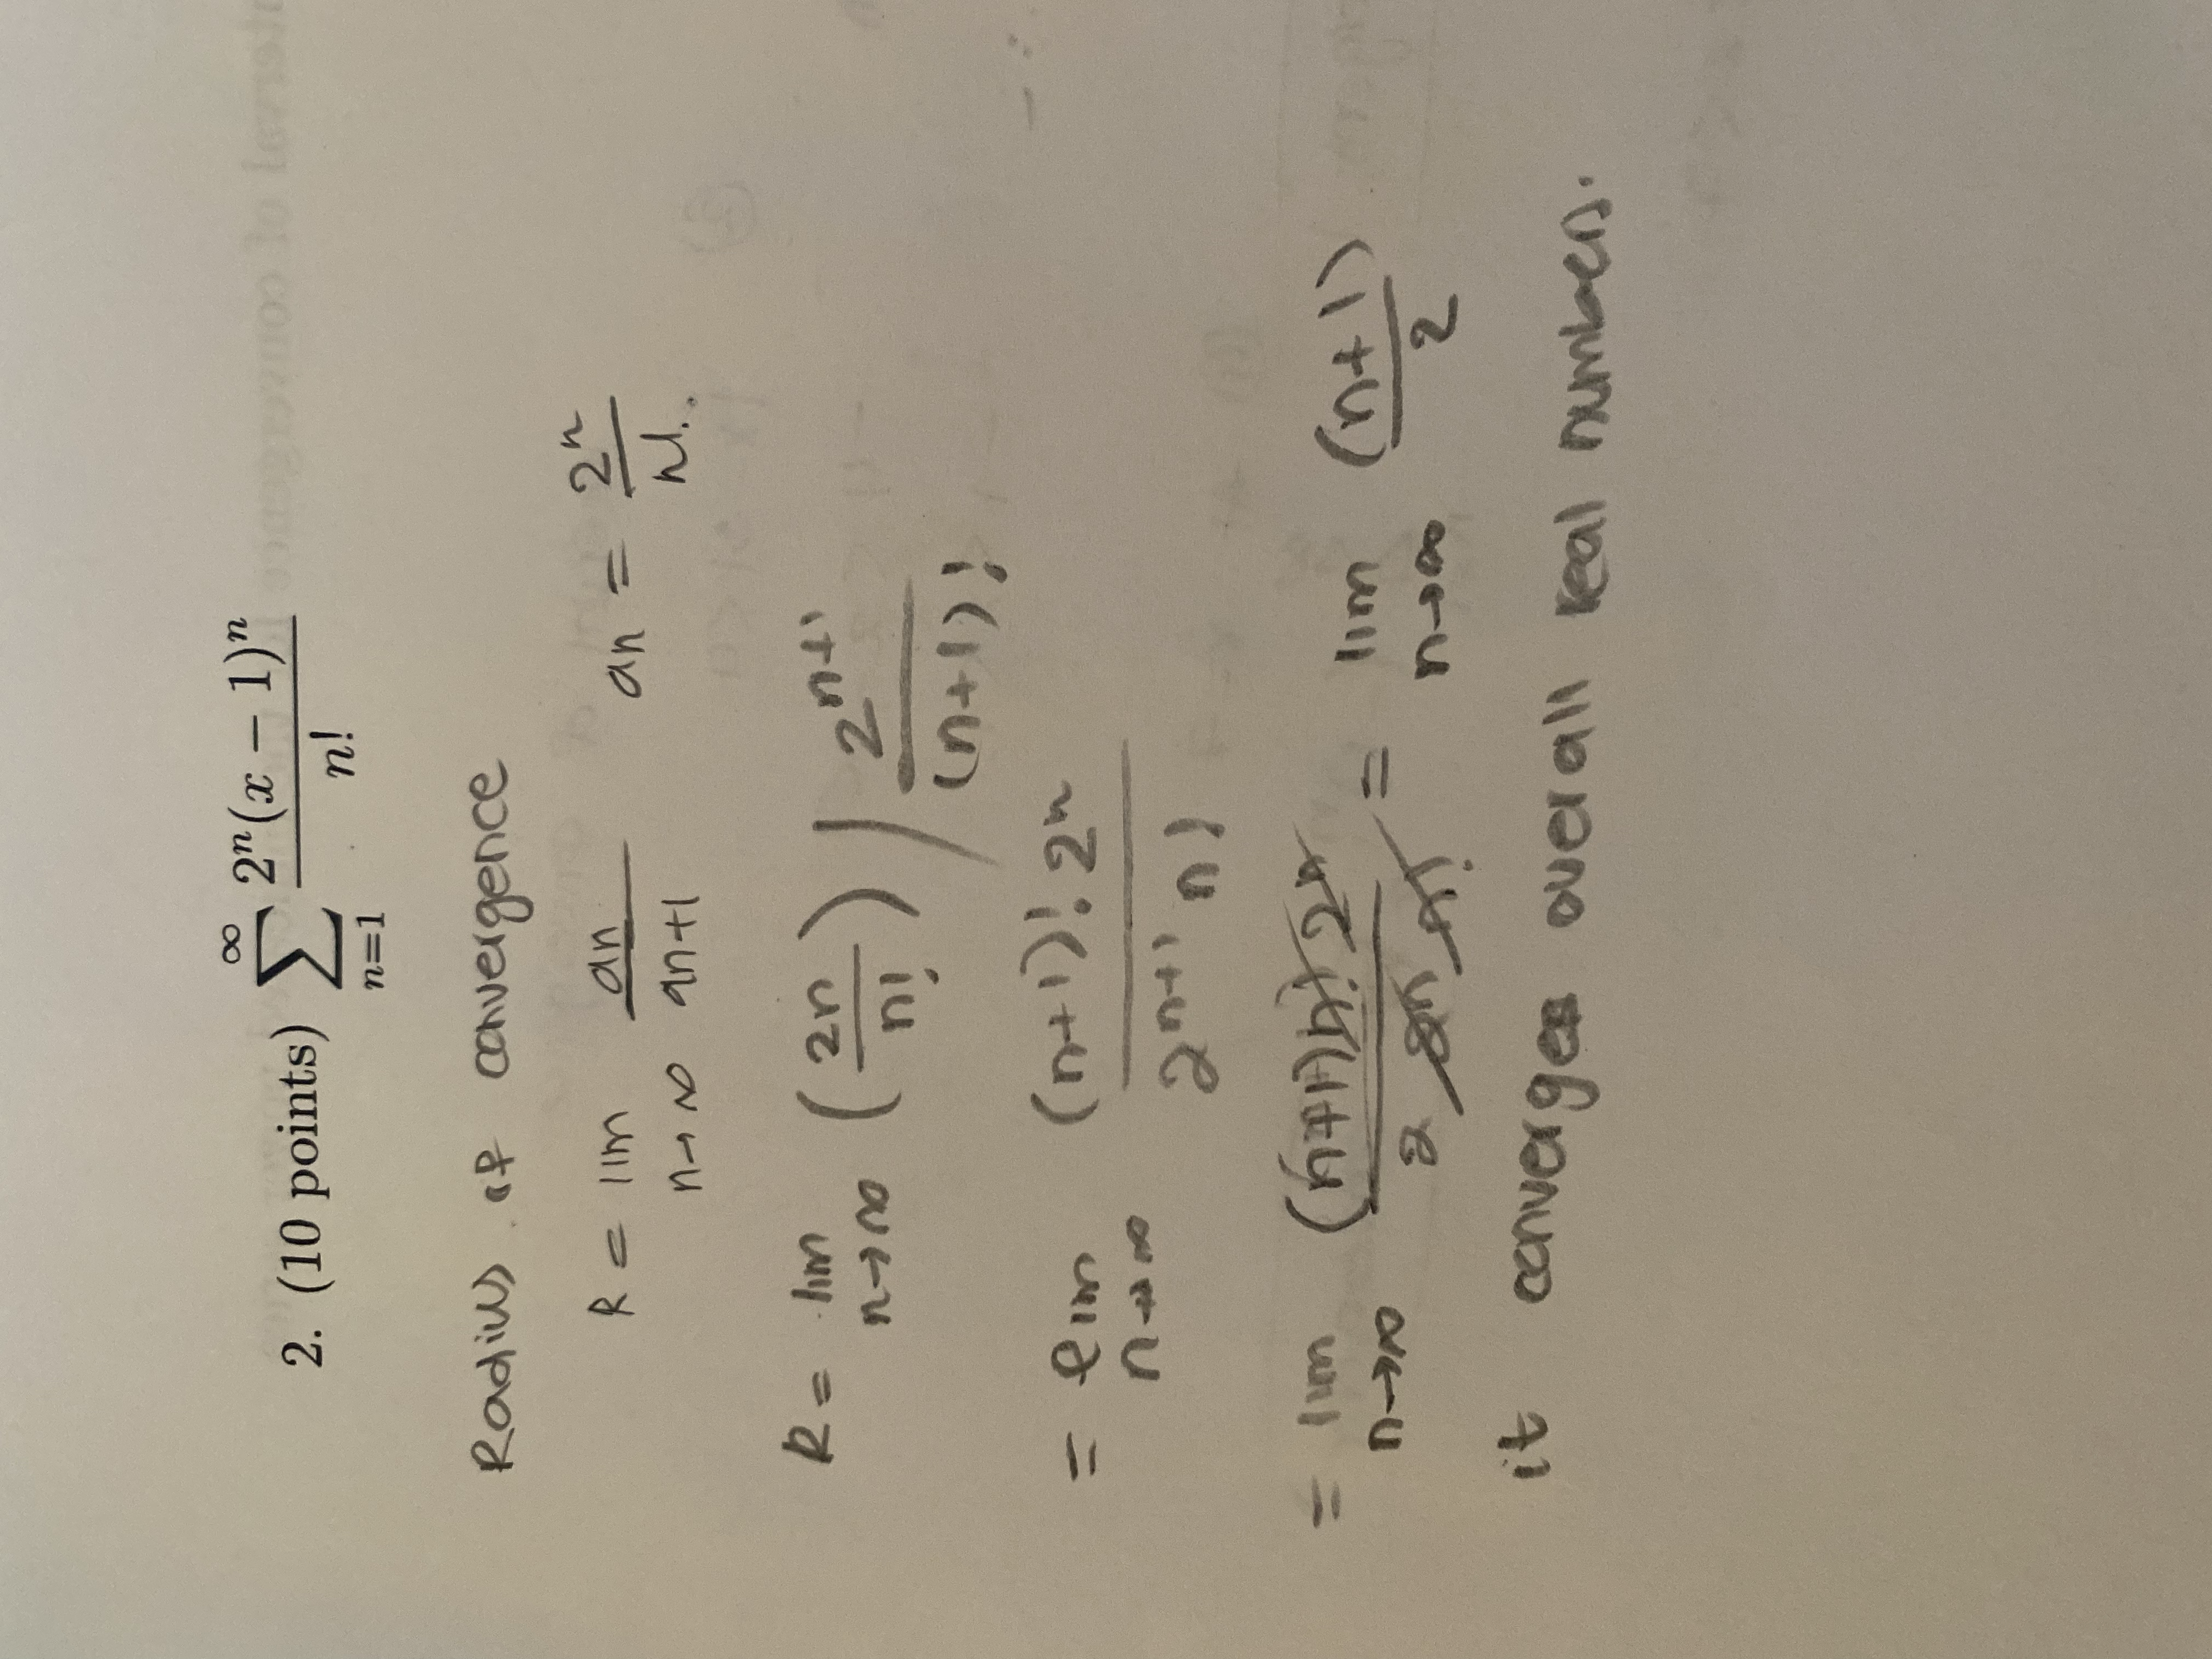 2. (10 points) ∞∑n=1 2ⁿ(x − 1)ⁿ / n!
Radius of convergence
R = lim n→∞ an / an+1   an = 2ⁿ / n!.
R = lim n→∞ (2n / n!) / 2ⁿ⁺¹ / (n+1)!
= lim n→∞ (n+1)! 2ⁿ / 2ⁿ⁺¹ n!
= lim n→∞ (n+1)n! 2ⁿ / 2 2ⁿ n! = lim n→∞ (n+1) / 2
it converges overall real numbers.